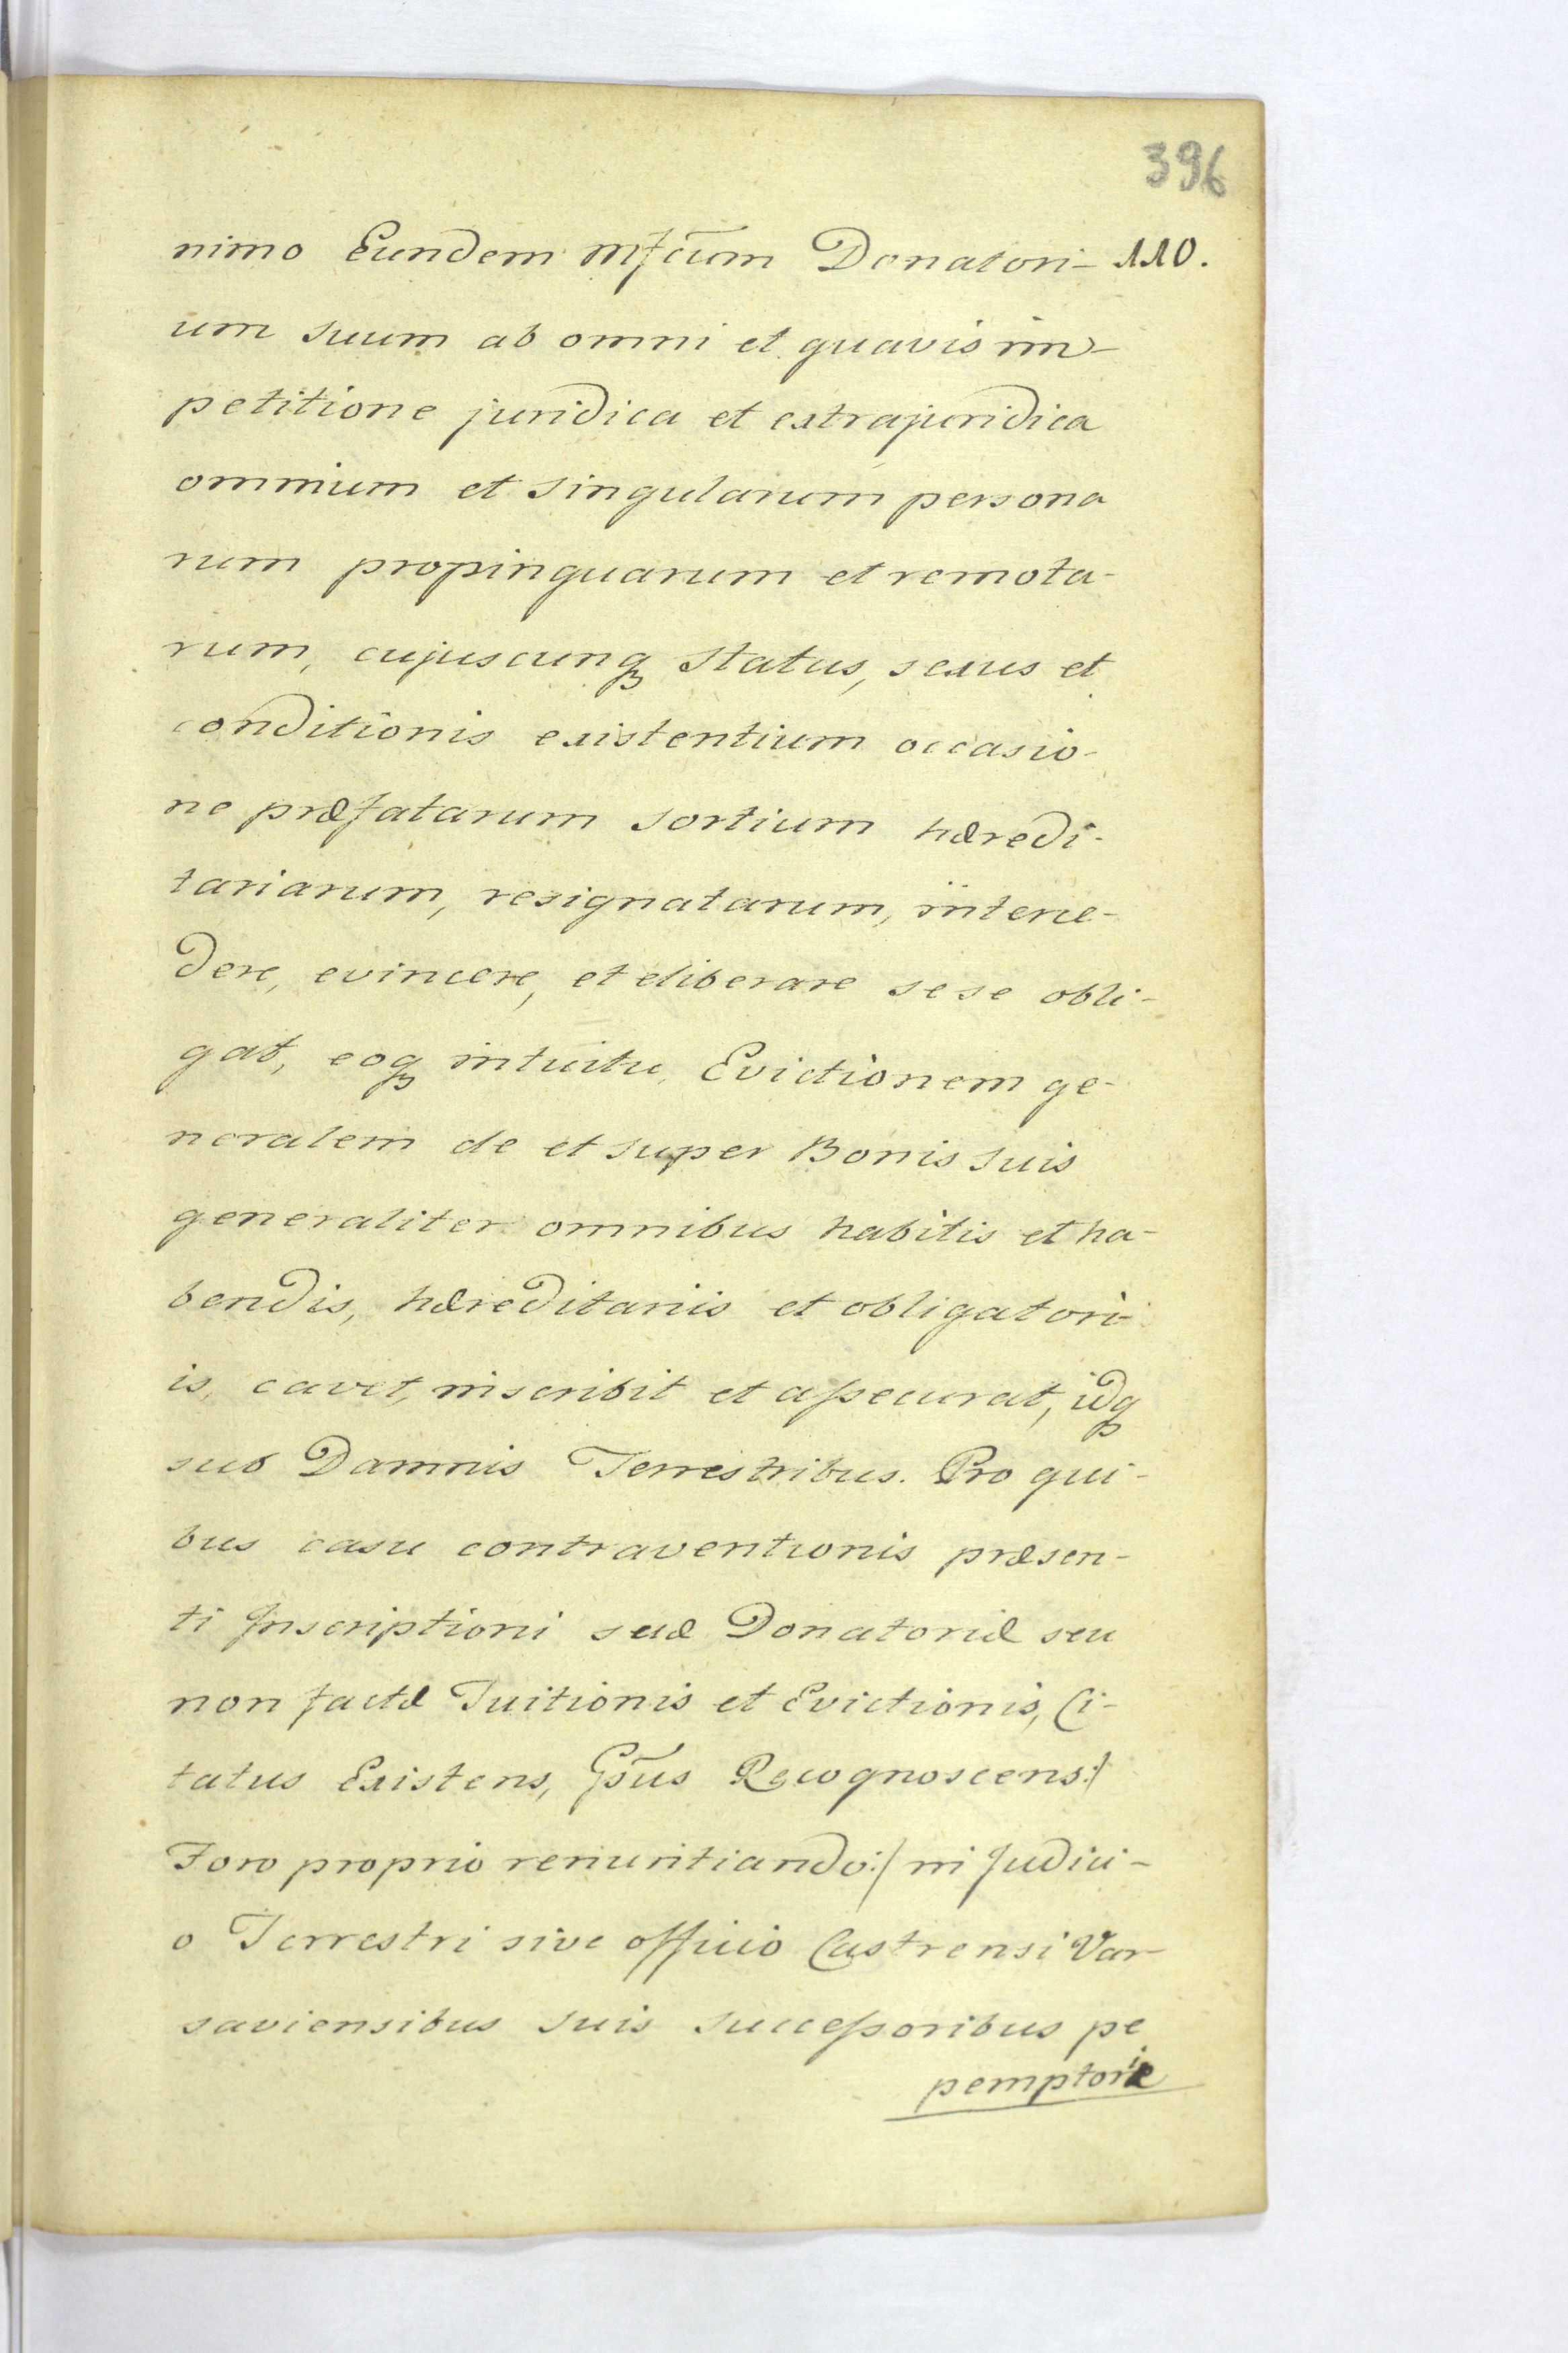 396
nimo Eundem Mfcum Donatori- 110.
um suum ab omni et quavis im-
petitione juridica et extrajuridica
omnium et singularum persona
rum propinquarum et remota-
rum, cujuscunqꝫ status, sexus et
conditionis existentium occasio-
ne præfatarum sortium hæredi-
tariarum, resignatarum, interce-
dere, evincere, et eliberare sese obli-
gat, eoqꝫ intuitu, Evictionem ge-
neralem de et super Bonis suis
generaliter omnibus habitis et ha-
bendis, hæreditariis et obligatori-
is, cavet, inscribit et assecurat, idqꝫ
sub Damnis Terrestribus. Pro qui-
bus casu contraventionis præsen-
ti Inscriptioni suæ Donatoriæ seu
non factæ Tuitionis et Evictionis, Ci-
tatus Existens, Gsus Recognoscens:/
Foro proprio renuntiando:/ in Judici-
o Terrestri sive officio Castrensi Var-
saviensibus suis successoribus pe
pemptorie